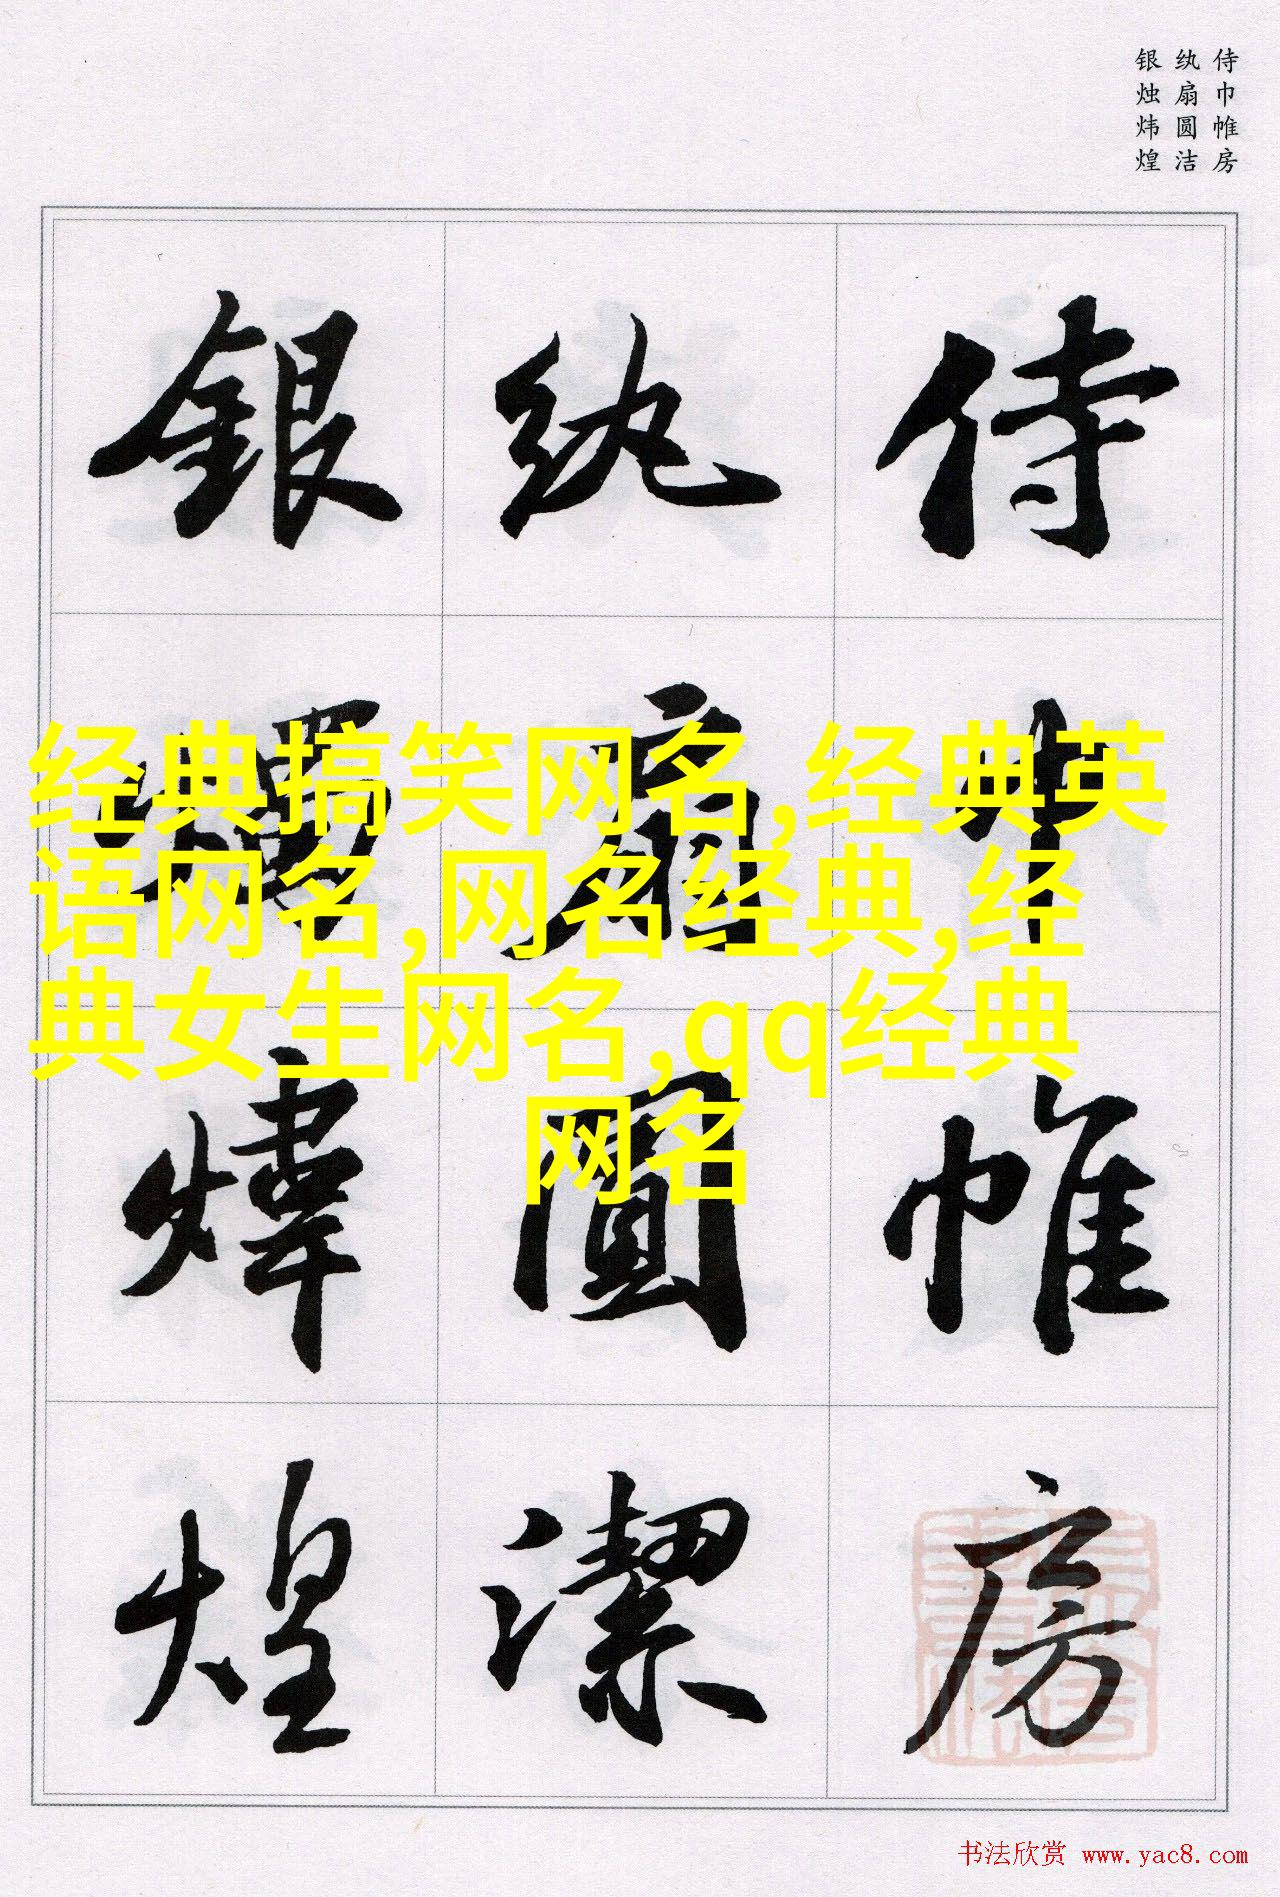 侍巾帷房
纨扇圆洁
银烛炜煌
侍巾帷房
紈扇圓潔
銀燭煒煌
经典搞笑网名,经典英
语网名,网名经典,经
典女生网名,qq经典
网名
书法欣赏 www.yac8.com